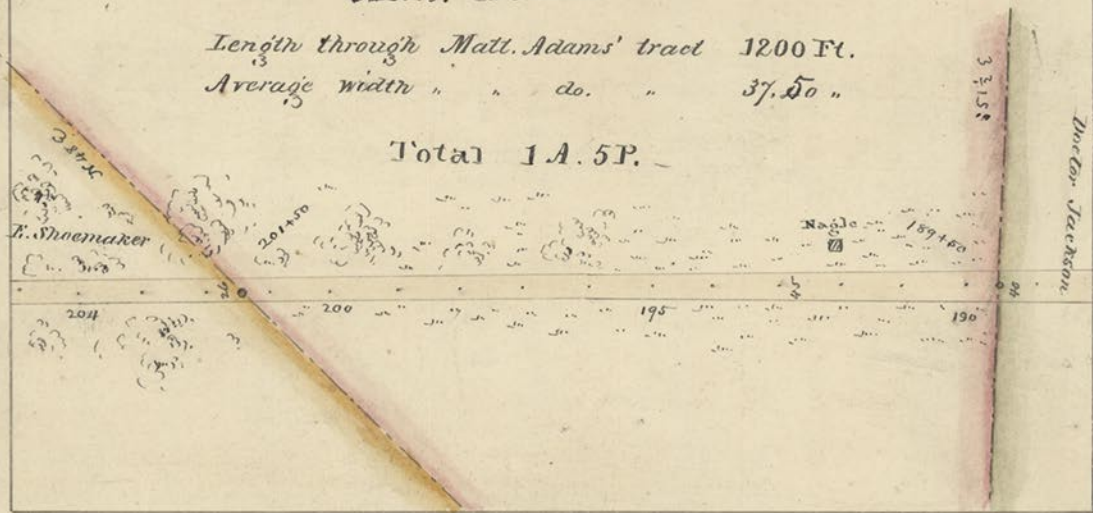 Length through Matt. Adams' tract 1200 Ft.
Average width " " do. " 37.50 "
Total 1 A. 5 P.
N 48 E
E. Shoemaker
201+50
Nagle
189+50
Doctor Jackson
204
200
195
45
190